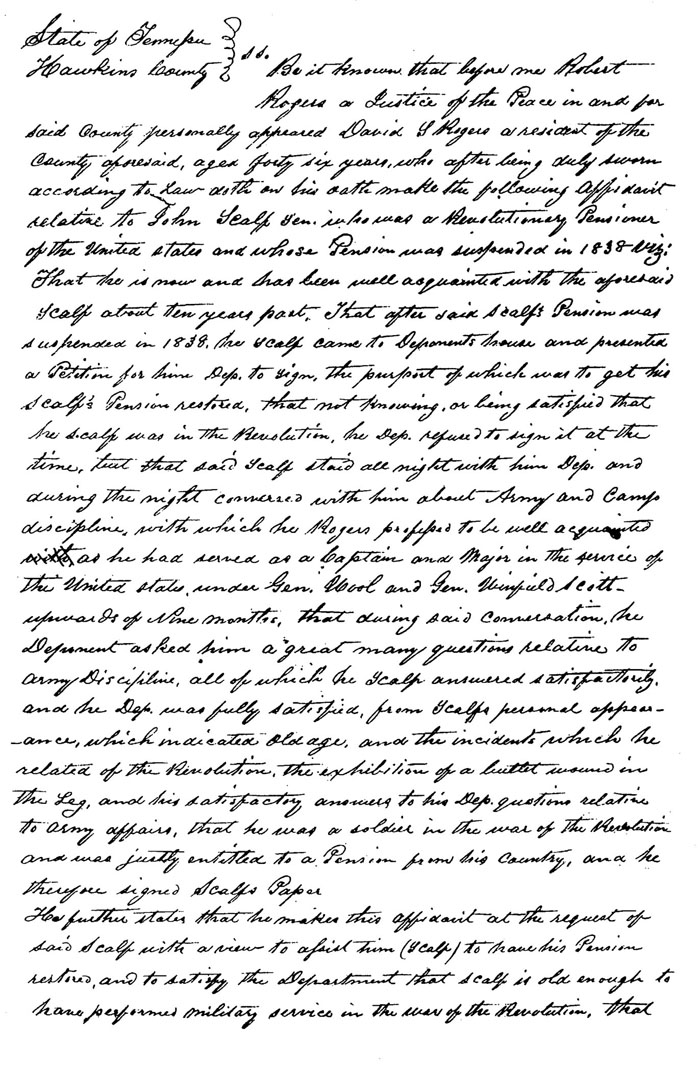 State of Tennessee
Hawkins County } SS. Be it known that before me Robert
Rogers a Justice of the Peace in and for
said County personally appeared David S Rogers a resident of the
County aforesaid, aged forty six years, who after being duly sworn
according to Law doth on his oath make the following Affidavit
relative to John Scalf Sen. who was a Revolutionary Pensioner
of the United states and whose Pension was suspended in 1838 Viz:
That he is now and has been well acquainted with the aforesaid
Scalf about ten years past. That after said Scalf's Pension was
suspended in 1838, he Scalf came to Deponents house and presented
a Petition for him Dep. to sign, the purport of which was to get his
Scalf's Pension restored, that not knowing, or being satisfied that
he Scalf was in the Revolution, he Dep. refused to sign it at the
time, but that said Scalf staid all night with him Dep. and
during the night conversed with him about Army and Camp
discipline, with which he Rogers professed to be well acquainted
with, as he had served as a Captain and Major in the service of
the United states, under Gen. Wool and Gen. Winfield Scott
upwards of Nine months, that during said conversation, he
Deponent asked him a great many questions relative to
Army Discipline, all of which he Scalf answered satisfactorily,
and he Dep. was fully satisfied, from Scalfs personal appear-
-ance, which indicated old age, and the incidents which he
related of the Revolution, the exhibition of a bullet wound in
the Leg, and his satisfactory answers to his Dep. quotions relative
to army affairs, that he was a soldier in the war of the Revolution
and was justly entitled to a Pension from his Country, and he
therefore signed Scalfs Paper
He further states that he makes this affidavit at the request of
said Scalf with a view to assist him (Scalf) to have his Pension
restored, and to satisfy the Department that Scalf is old enough to
have performed military service in the war of the Revolution, that